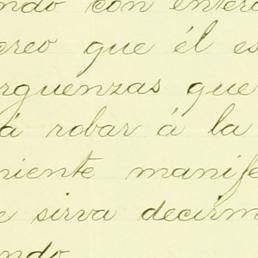 ndo con entera
creo que él es
rguenzas que
á robar á la
niente manife
e sirva decirm
ndo